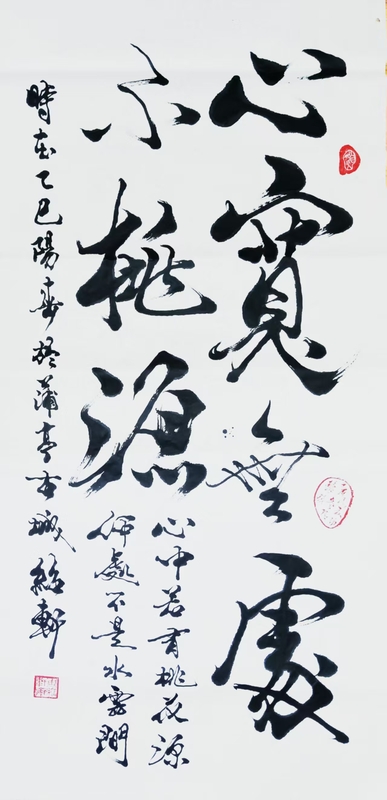 心寬無處
不桃源
心中若有桃花源
何處不是水雲間
時在乙巳陽春於蒲亭古城紹軒